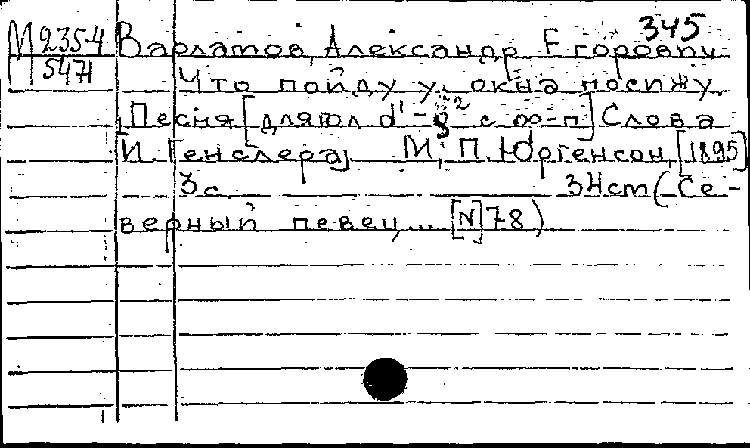 345
М 235-4 Варламов, Александр Егорович
547 Что пойду у окна посижу.
Песня [для гол d¹-g² с ф-п] Слова
И. Генслера. М., П. Юргенсон, [1895]
3 с. 34 см (Се-
верный певец ... [N] 78)